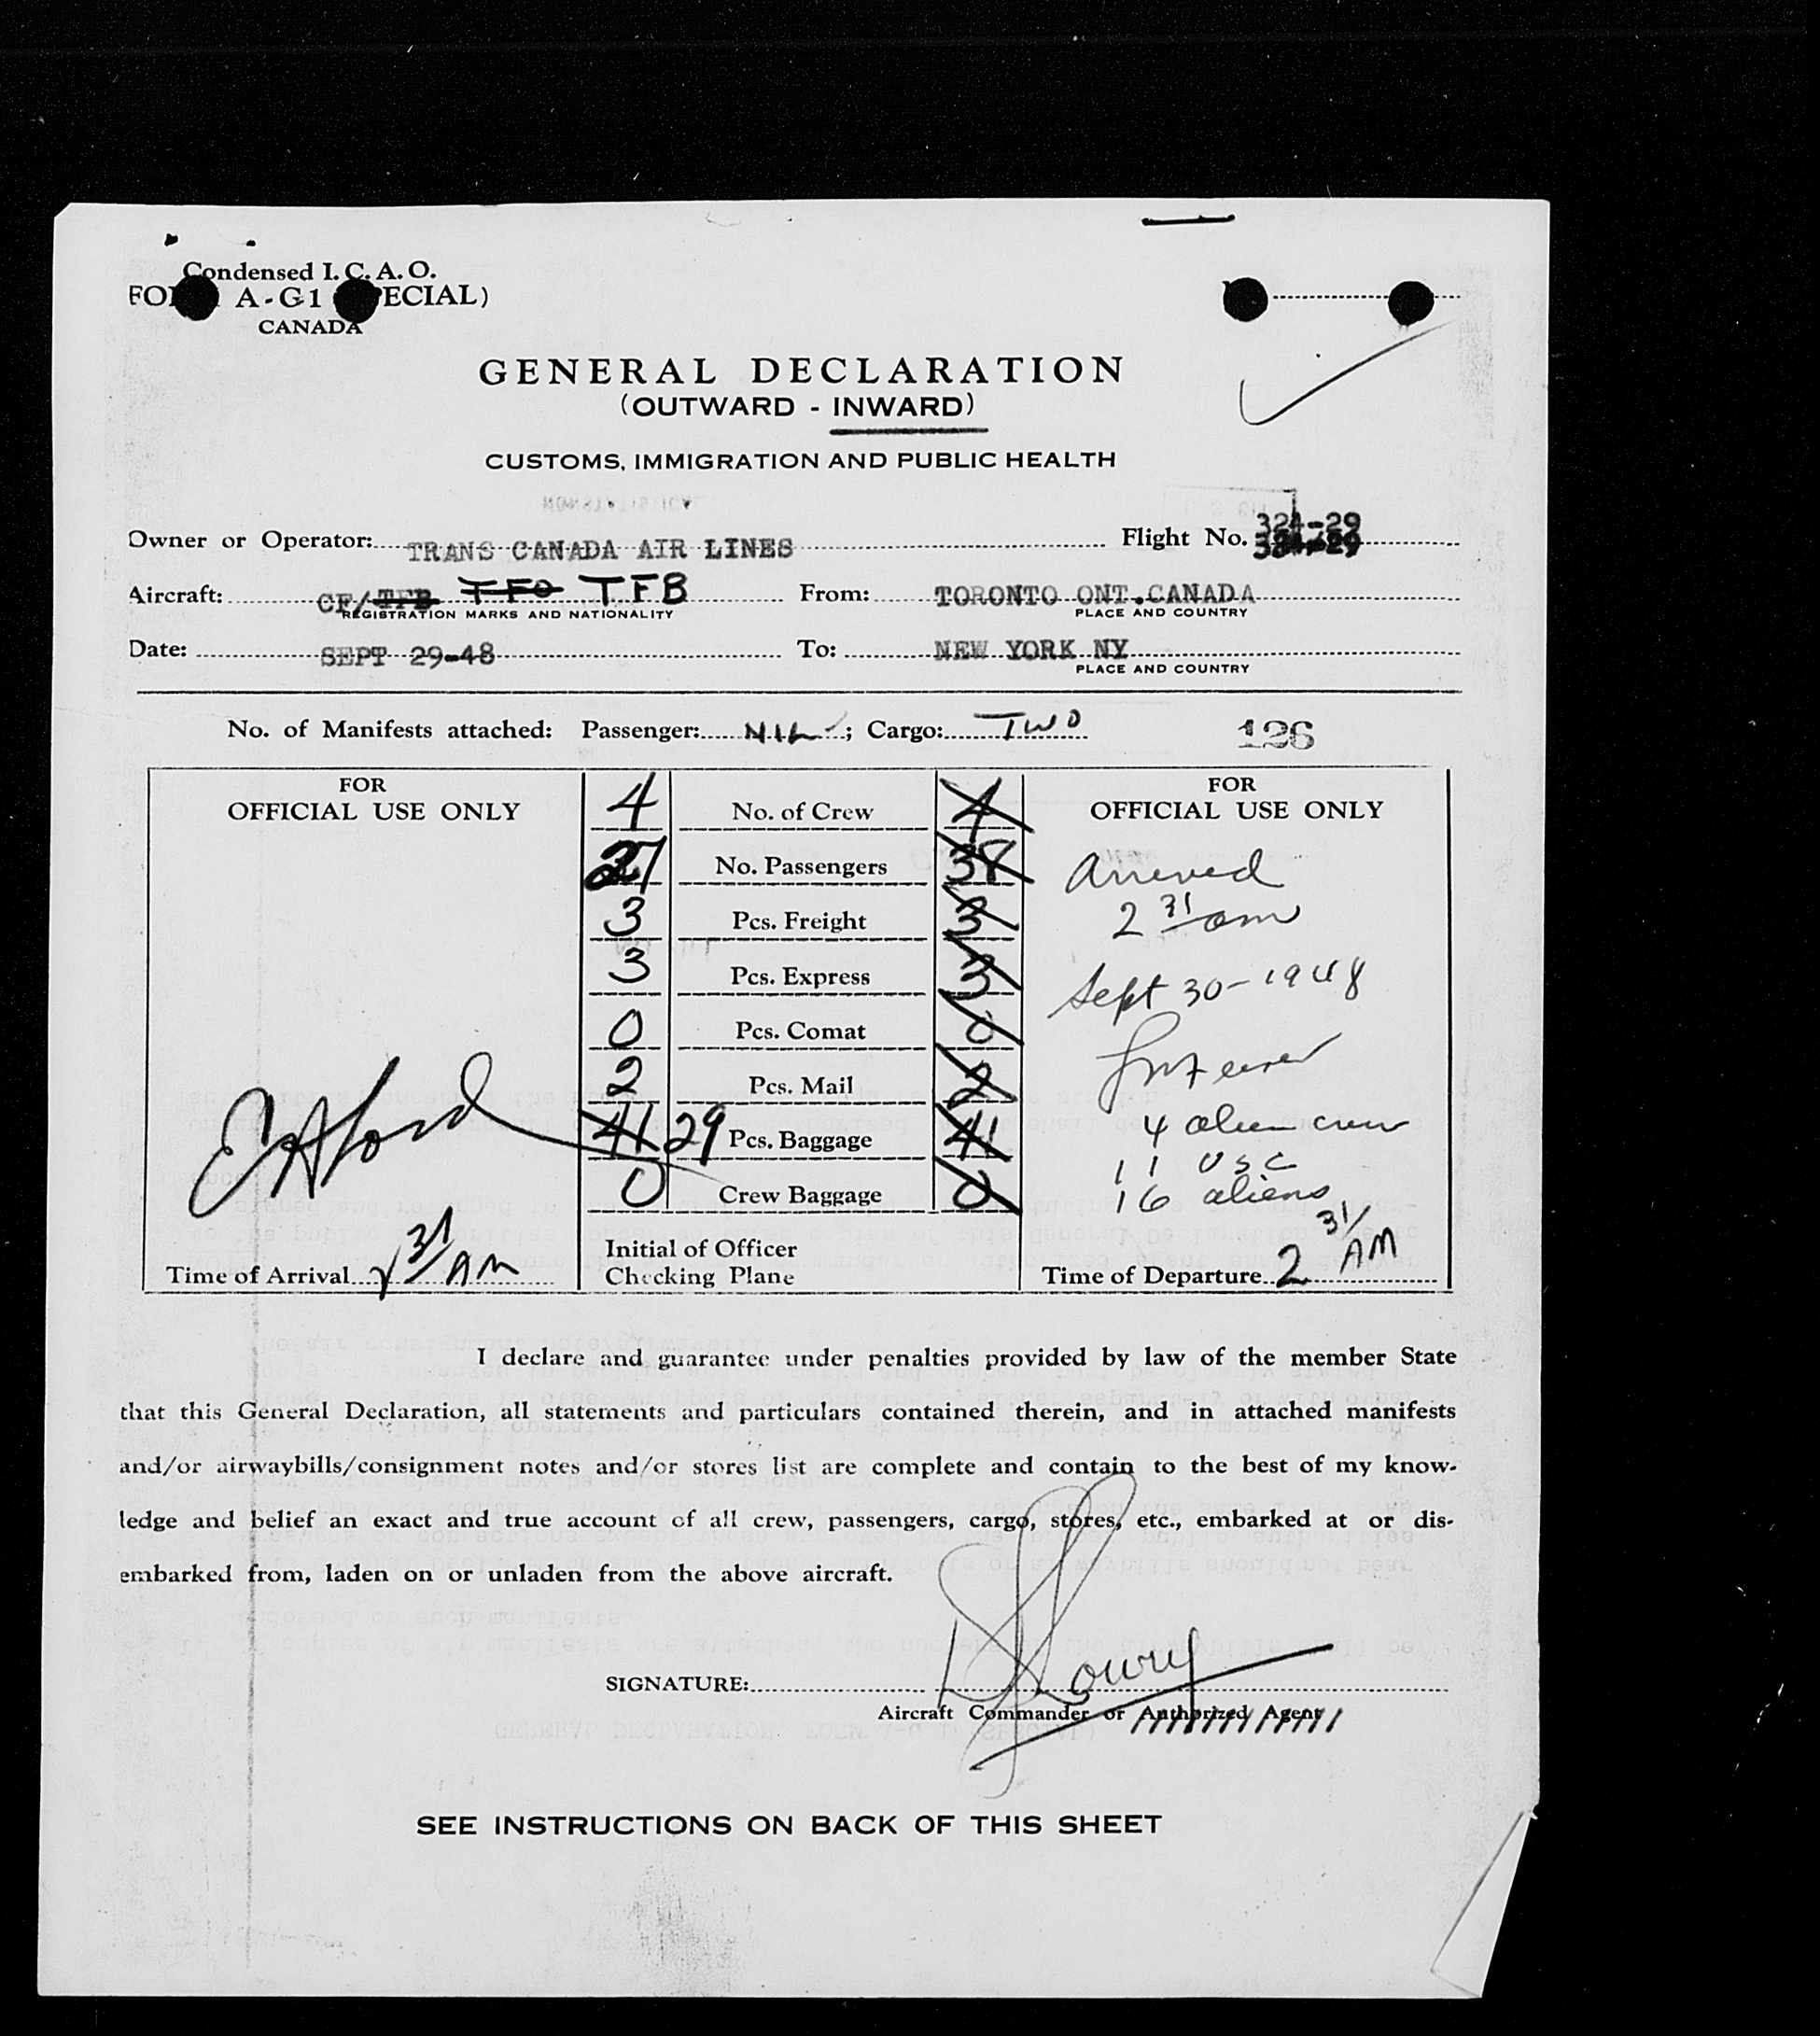 Condensed I. C. A. O.
A-G1 ECIAL)
CANADA
GENERAL DECLARATION
(OUTWARD - INWARD)
CUSTOMS, IMMIGRATION AND PUBLIC HEALTH
Owner or Operator: TRANS CANADA AIR LINES Flight No. 324-29
Aircraft: CF/TFB TFO TFB From: TORONTO ONT. CANADA
REGISTRATION MARKS AND NATIONALITY PLACE AND COUNTRY
Date: SEPT 29-48 To: NEW YORK NY
PLACE AND COUNTRY
No. of Manifests attached: Passenger: NIL; Cargo: TWO 126
FOR FOR
OFFICIAL USE ONLY OFFICIAL USE ONLY
4 No. of Crew 4
27 No. Passengers 38 Arrived
3 Pcs. Freight 3 2 31 am
3 Pcs. Express 3 Sept 30-1948
0 Pcs. Comat 0
2 Pcs. Mail 2
41 29 Pcs. Baggage 41 4 alien crew
11 USC
0 Crew Baggage 0 16 aliens
Initial of Officer
Checking Plane
Time of Arrival 2 31 AM Time of Departure 2 31 AM
I declare and guarantee under penalties provided by law of the member State
that this General Declaration, all statements and particulars contained therein, and in attached manifests
and/or airwaybills/consignment notes and/or stores list are complete and contain to the best of my know-
ledge and belief an exact and true account of all crew, passengers, cargo, stores, etc., embarked at or dis-
embarked from, laden on or unladen from the above aircraft.
SIGNATURE: Lowry
Aircraft Commander or Authorized Agent
SEE INSTRUCTIONS ON BACK OF THIS SHEET